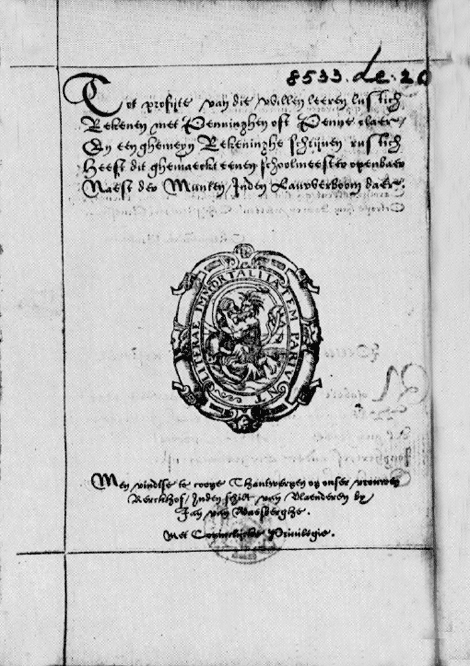 8533.de.20
Tot profijte van die willen leeren lustich
Rekenen met Penninghen oft Penne claer,
En een ghemeyn Rekeninghe schrijuen rustich
Heeft dit ghemaeckt eenen schoolmeester openbaer
Naest der Munten Inden Lauwerboom daer.
LITERAE IMMORTALITATEM PARIUNT
Men vindtse te coope Thantwerpen op onser vrouwen
Kerckhof, Inden schilt van Vlaenderen by
Jan van Waesberghe.
Met Coninclijcke Priuilegie.